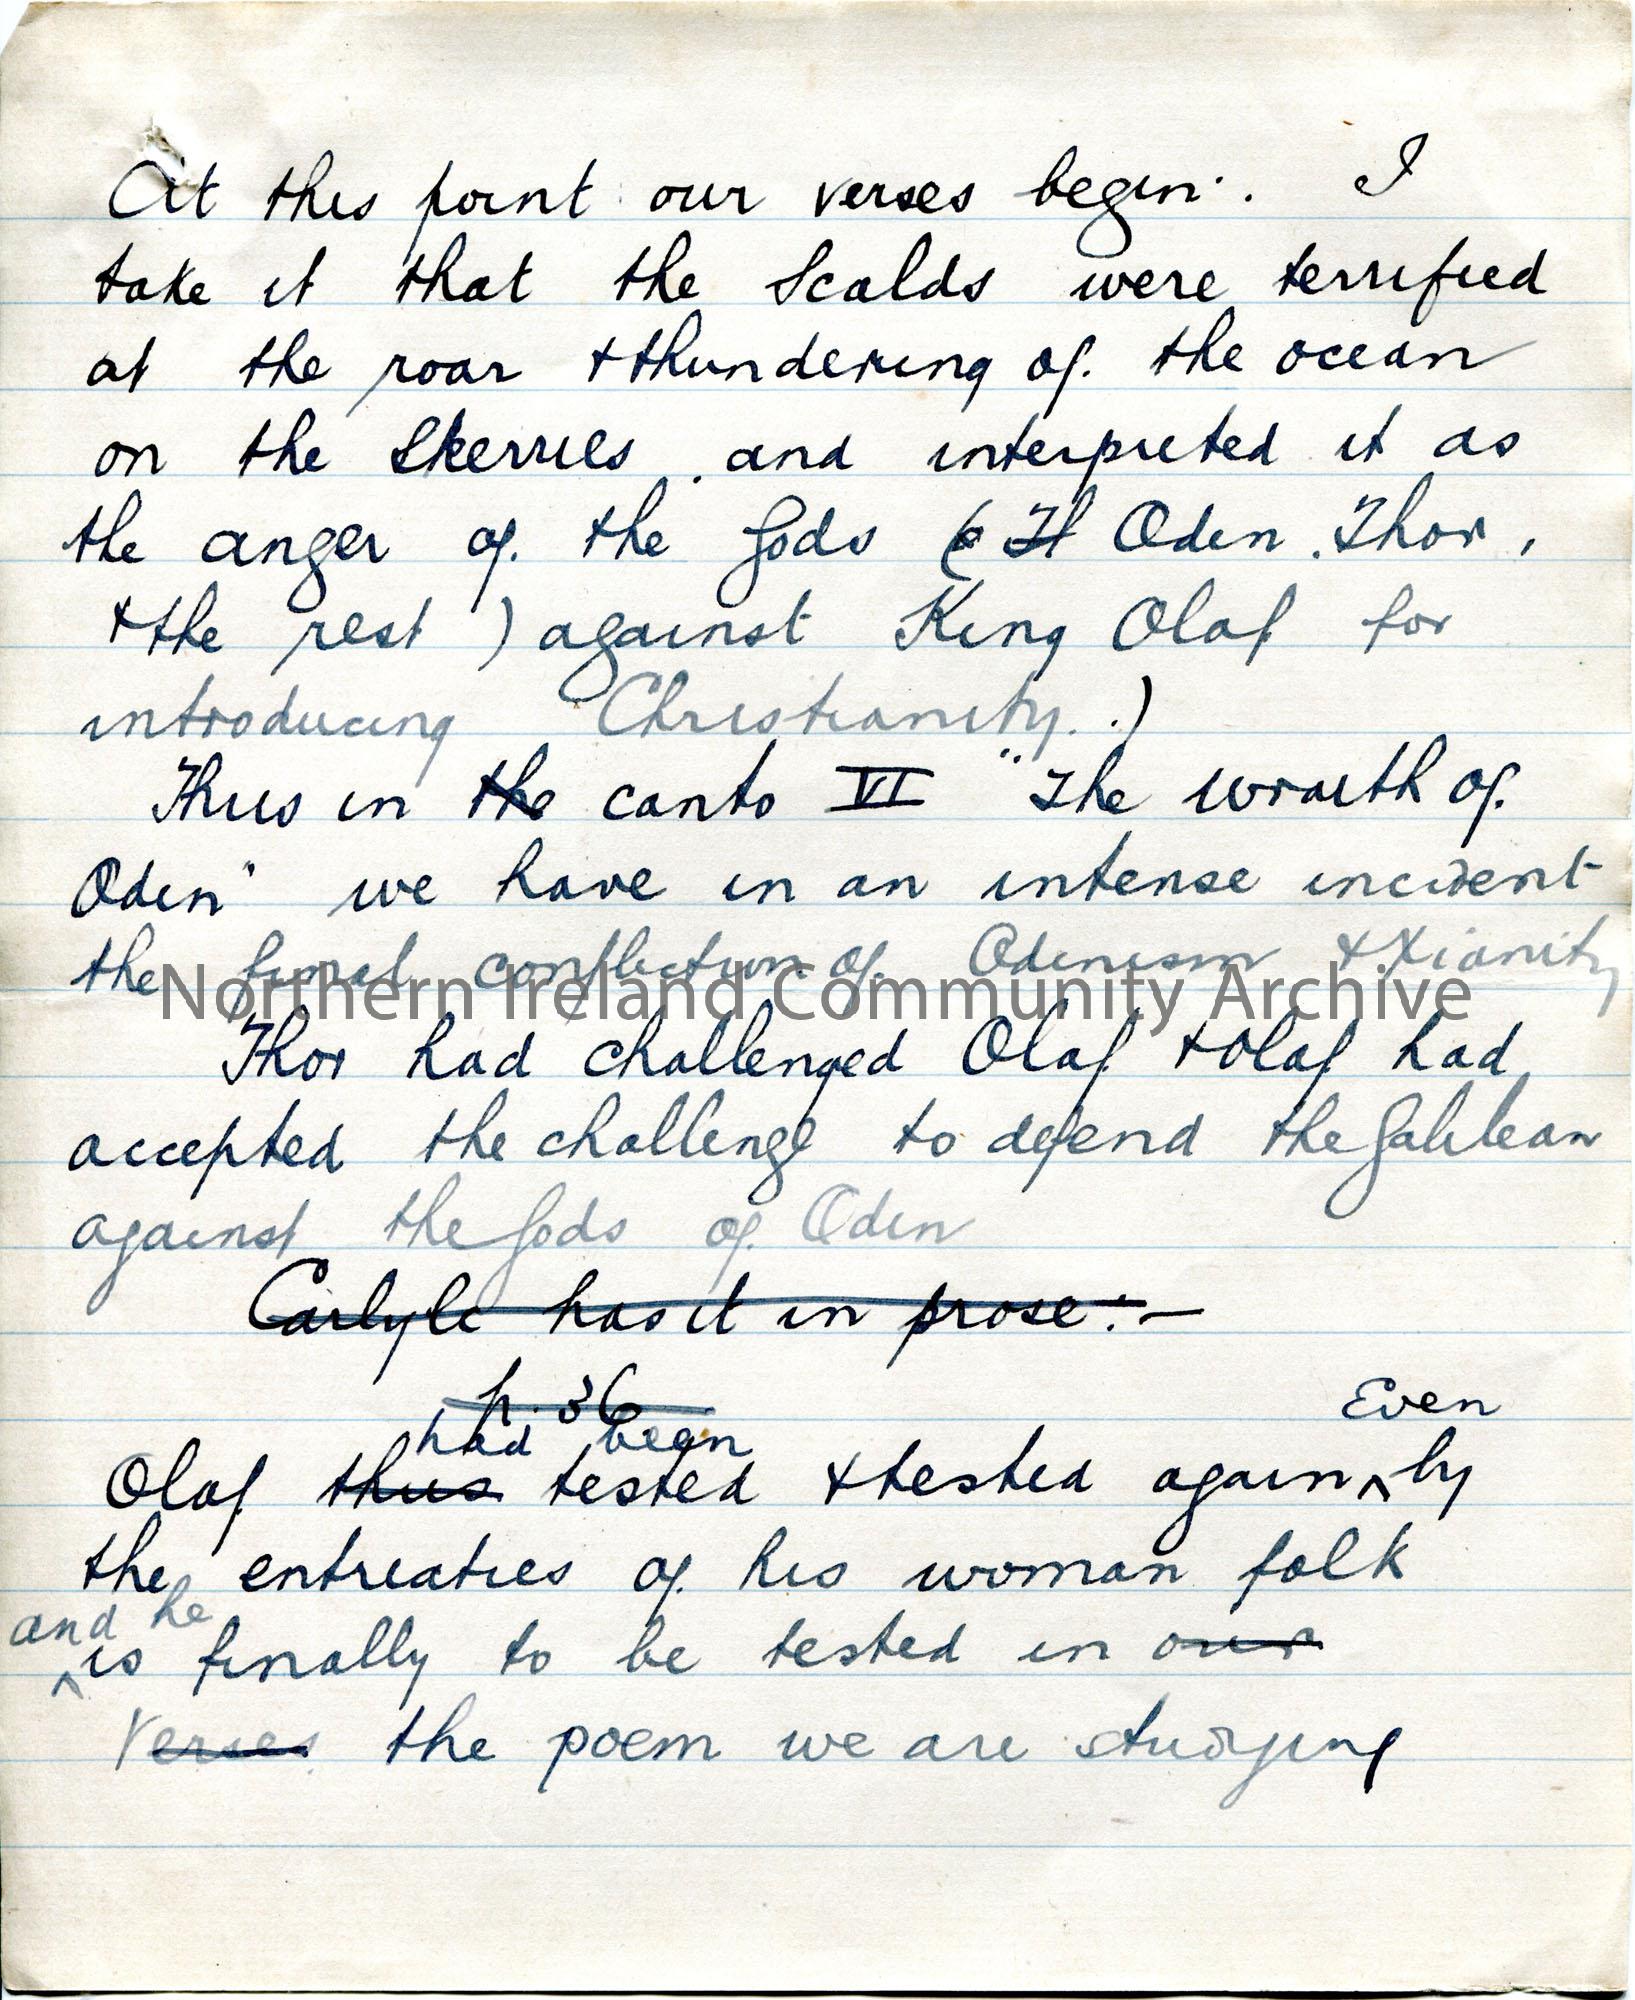 At this point our verses begin. I
take it that the Scalds were terrified
at the roar & thundering of the ocean
on the Skerries, and interpreted it as
the anger of the Gods ( Th Oden. Thor,
& the rest ) against King Olaf for
introducing Christianity.)
Thus in the canto VI "The wraith of
Oden" we have in an intense incident
the final confliction of Odenism & Xianity
Northern Ireland Community Archive
Thor had challenged Olaf & Olaf had
accepted the challenge to defend the Galilean
against the Gods of Oden
Carlyle has it in prose:-
p. 36
had been Even
Olaf thus tested & tested again ^ by
the entreaties of his woman folk
and he
^ is finally to be tested in our
Verses the poem we are studying